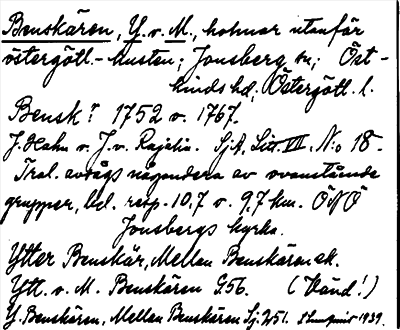 Benskären, Y. o. M., holmar utanför
östergötl.-kusten; Jonsberg sn; Öst-
kinds hd, Östergötl. l.
Bensk? 1752 o. 1767.
J. Hahn o. J. v. Rajalin. SjA, Litt. VII, N:o 18.
Trol. avses någondera av ovanstående
grupper, bel. resp. 10,7 o. 9,7 km. ÖNÖ
Jonsbergs kyrka.
Ytter Benskär, Mellan Benskären ek.
Ytt. o. M. Benskären G56. (Vänd!)
Y. Benskären, Mellan Benskären Sj. 251. 1939.